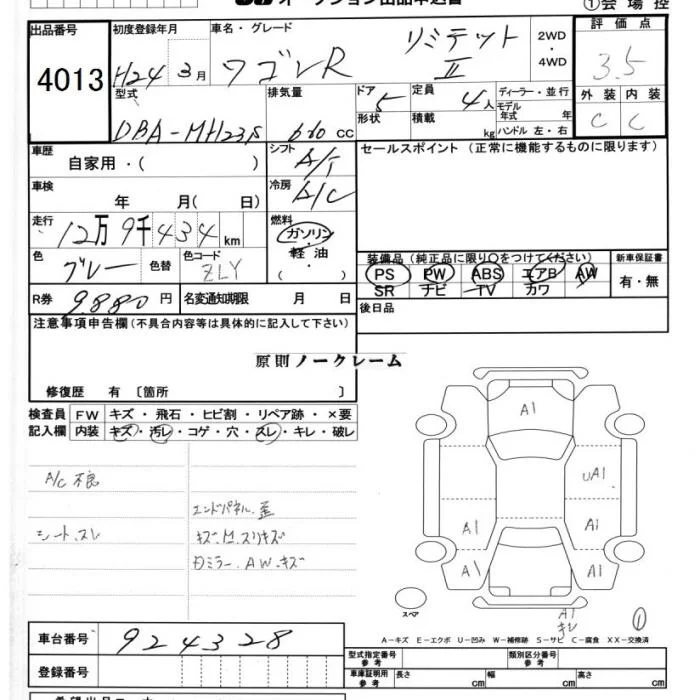 オークション出品申込書
①会場控
出品番号 4013
初度登録年月 H24 3月
車名・グレード ワゴンR リミテッド II
2WD ・ 4WD
評価点 3.5
型式 DBA-MH23S
排気量 660 cc
ドア 5
形状
定員 4人
積載 kg
ディーラー・並行
モデル年式 年
ハンドル 左・右
外装 C
内装 C
車歴 自家用・( )
シフト A/T
セールスポイント (正常に機能するものに限ります)
車検 年 月( 日)
冷房 A/C
走行 12万9千434km
燃料 ガソリン・軽油・
色 グレー 色替
色コード ZLY
装備品(純正品に限り○をつけてください)
PS PW ABS エアB AW
SR ナビ TV カワ
新車保証書 有・無
R券 9880円
名変通知期限 月 日
後日品
注意事項申告欄(不具合内容等は具体的に記入して下さい)
原則ノークレーム
修復歴 有 〔箇所 〕
検査員記入欄
FW キズ・飛石・ヒビ割・リペア跡・×要
内装 キズ・汚レ・コゲ・穴・スレ・キレ・破レ
A/C 不良
エンドパネル.歪
シート.スレ
キズ.凹.スリキズ
ミラー.AW.キズ
A1
UA1
A1
A1
A1
A1
スペア
A1
キレ
①
A-キズ E-エクボ U-凹み W-補修跡 S-サビ C-腐食 XX-交換済
車台番号 924328
登録番号
型式指定番号 参考
類別区分番号 参考
車庫証明用 参考 長さ cm 幅 cm 高さ cm